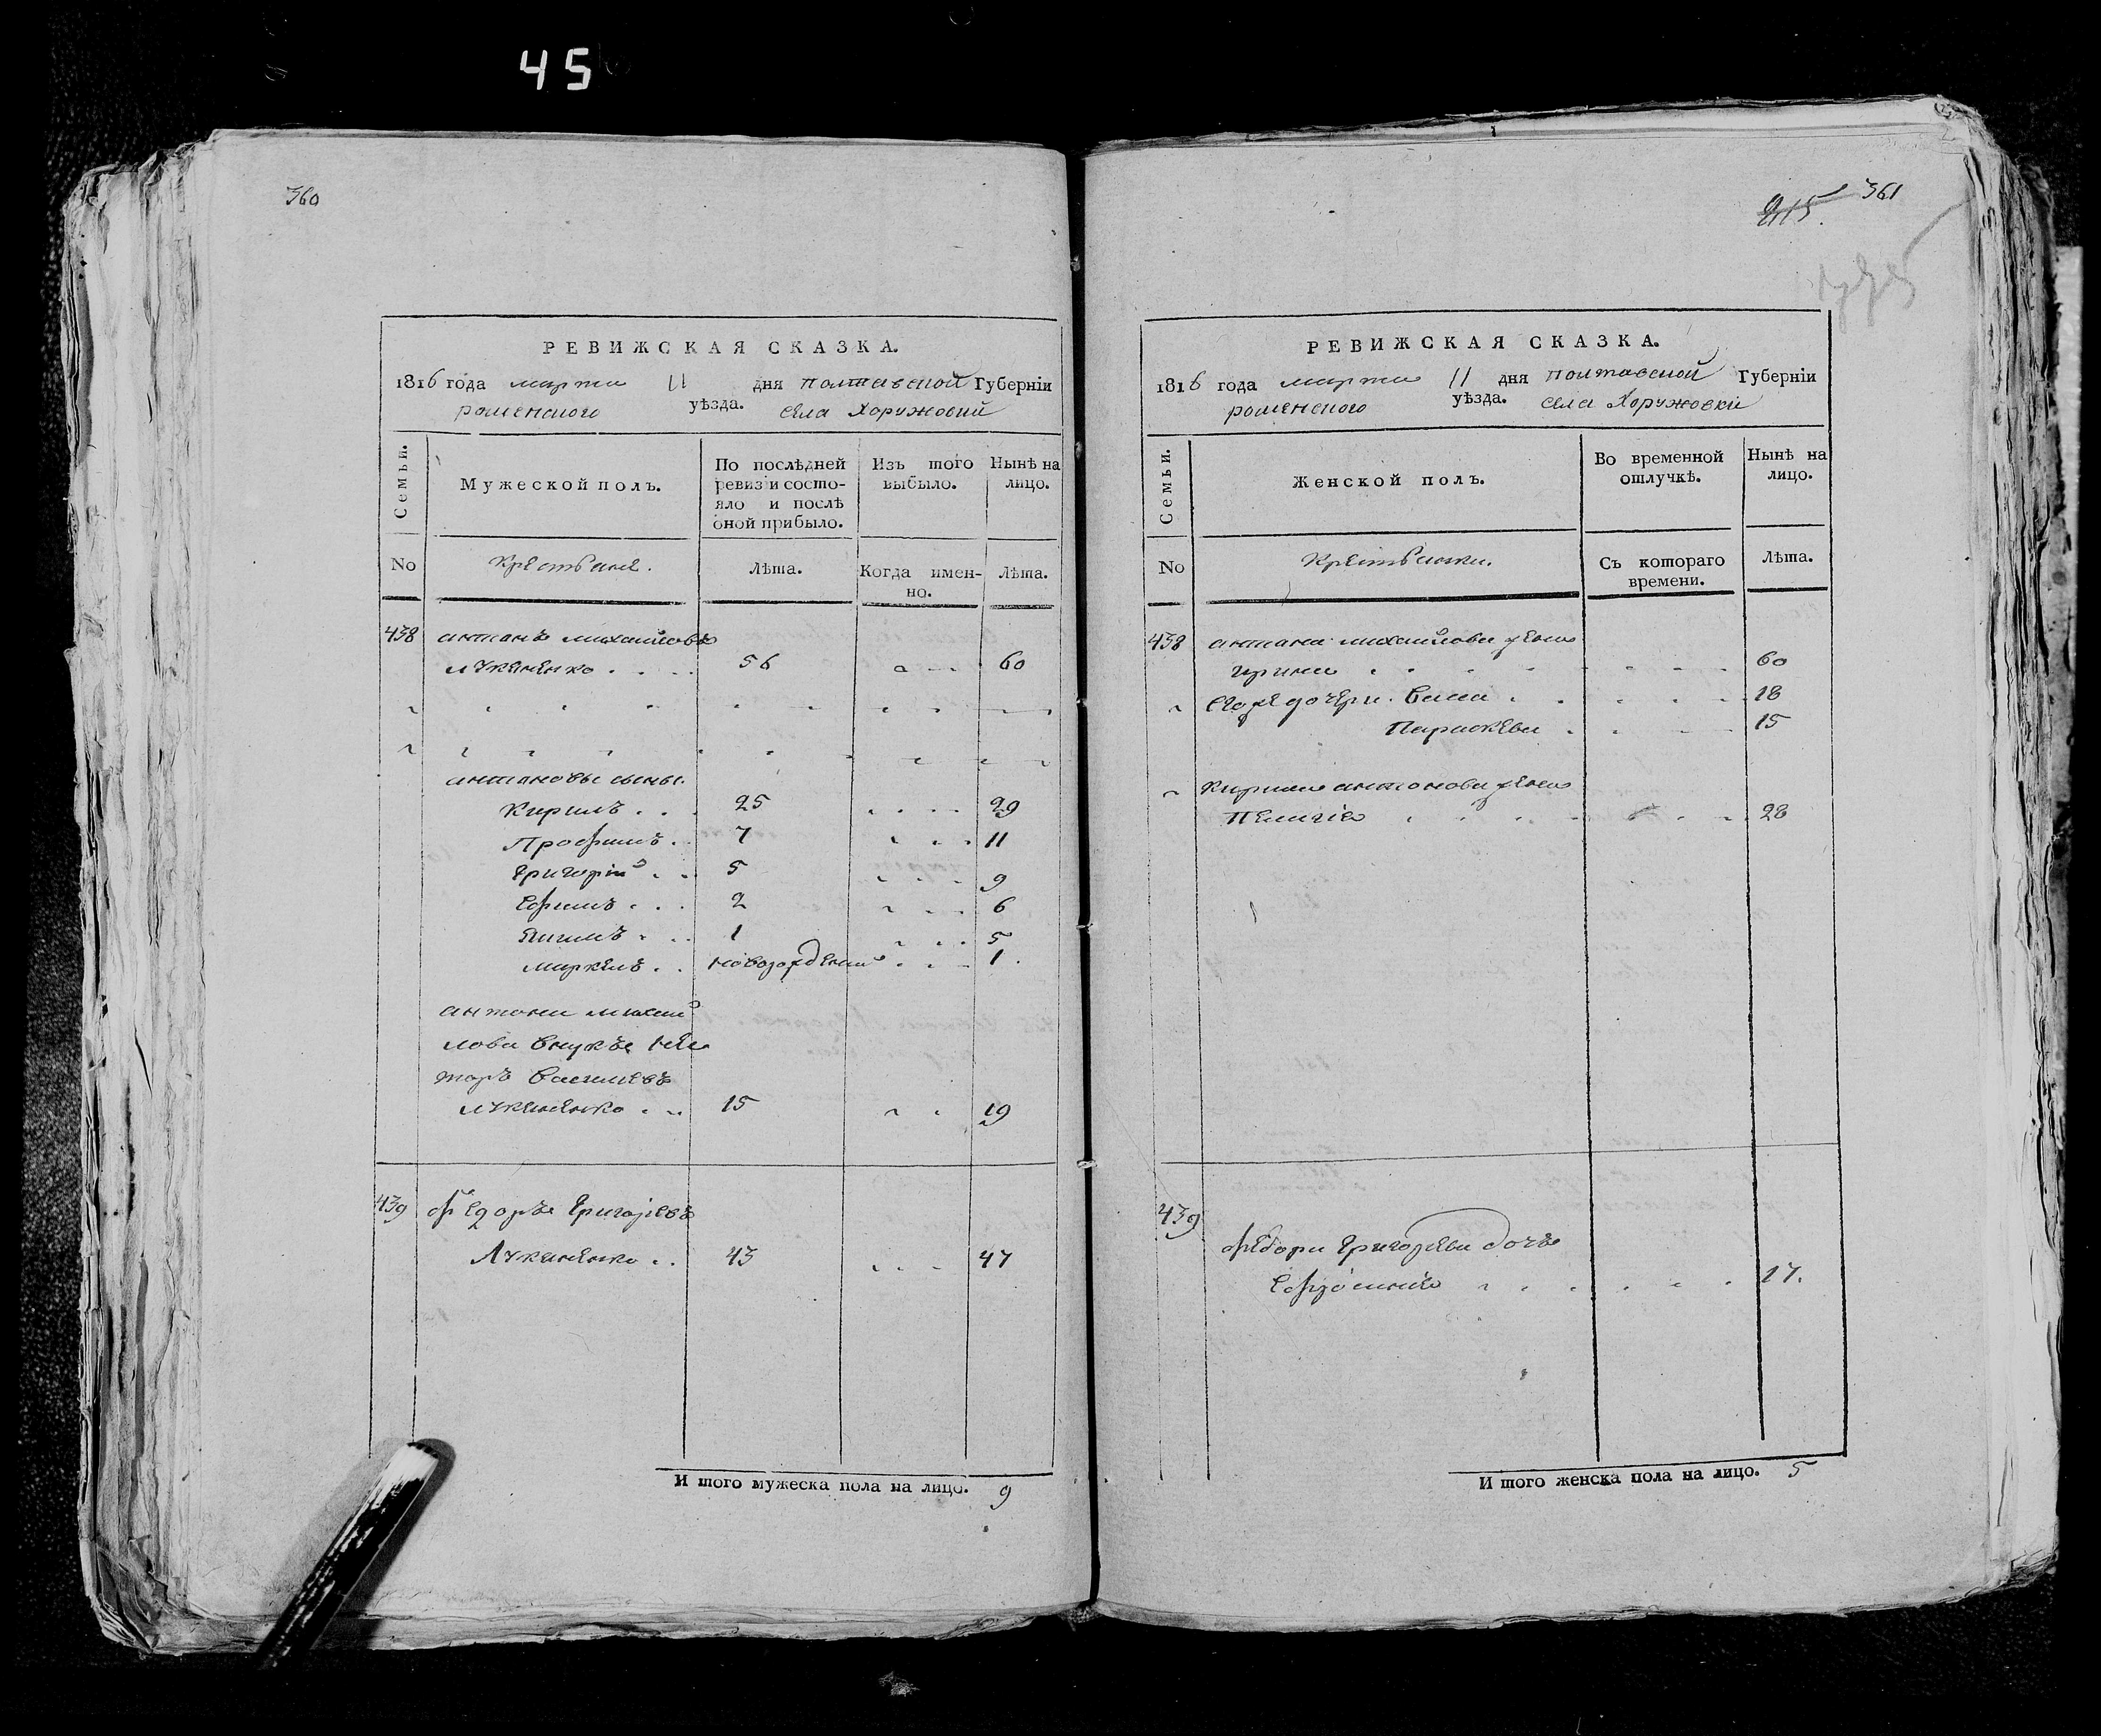 45
360
РЕВИЖСКАЯ СКАЗКА.
1816 года марта 11 дня полтавской Губерніи
роменского уѣзда. села Хоружовки
Семьи.
Мужеской полъ.
По послѣдней ревизіи состояло и послѣ оной прибыло.
Изъ того выбыло.
Нынѣ на лицо.
No
Крестьяне.
Лѣта.
Когда именно.
Лѣта.
438 антонъ михайловъ
лукяненко . . . . 56 60
антоновы сыны.
Кирилъ . . . 25 29
Трофимъ . . 7 11
Григорій . . 5 9
Ефимъ . . . 2 6
Якимъ . . . 1 5
маркелъ . . новорожденный 1.
антона михай
лова внукъ Не
торъ Василиевъ
лукяненко . . 15 19
439 федоръ Григориевъ
Лукяненко . . 43 47
И того мужеска пола на лицо. 9
215. 361
РЕВИЖСКАЯ СКАЗКА.
1816 года марта 11 дня полтавской Губерніи
роменского уѣзда. села Хоружовки
Семьи.
Женской полъ.
Во временной отлучкѣ.
Нынѣ на лицо.
No
Крестьянки.
Съ котораго времени.
Лѣта.
438 антона михайлова жена
Ирина 60
Егоже дочери. Васа 18
Параскева 15
Кирила антонова жена
Пелагія 28
439
федора Григорьева дочь
Ефросинія 17.
И того женска пола на лицо. 5